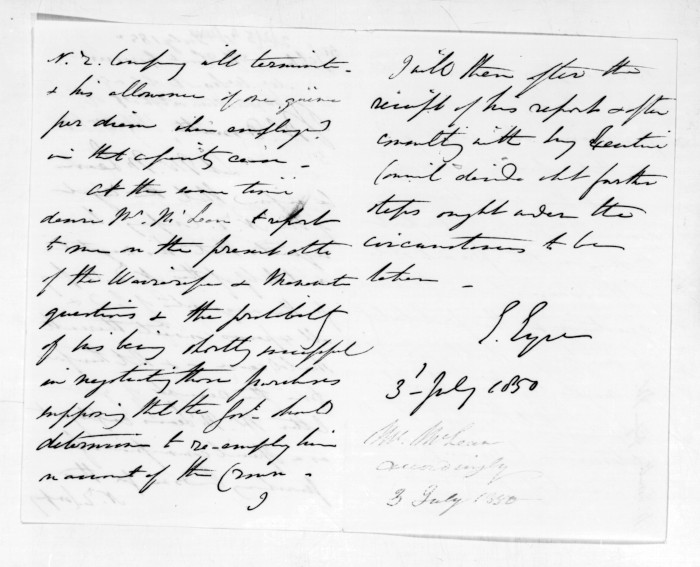 N. Z. Company will terminate
& his allowance of one guinea
per diem when employed
in that capacity cease -
At the same time
desire Mr. McLean to report
to me on the present state
of the Wairarapa & Manawatu
questions & the probability
of his being shortly successful
in negotiating those purchases
supposing that the Govt. should
determine to re-employ him
on account of the Crown -
I
I will then after the
receipt of his report & after
consulting with my Executive
Council decide what further
steps ought under the
circumstances to be
taken -
E. Eyre
3 July 1850
Mr. McLean
accordingly
3 July 1850